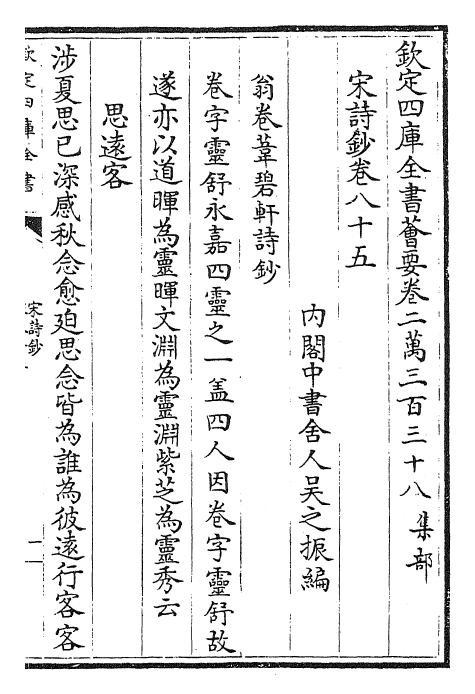 欽定四庫全書薈要卷二萬三百三十八 集部
宋詩鈔卷八十五
內閣中書舍人吳之振編
翁卷葦碧軒詩鈔
卷字靈舒永嘉四靈之一盖四人因卷字靈舒故
遂亦以道暉為靈暉文淵為靈淵紫芝為靈秀云
思遠客
涉夏思已深感秋念愈廹思念皆為誰為彼遠行客客
欽定四庫全書
宋詩鈔
一